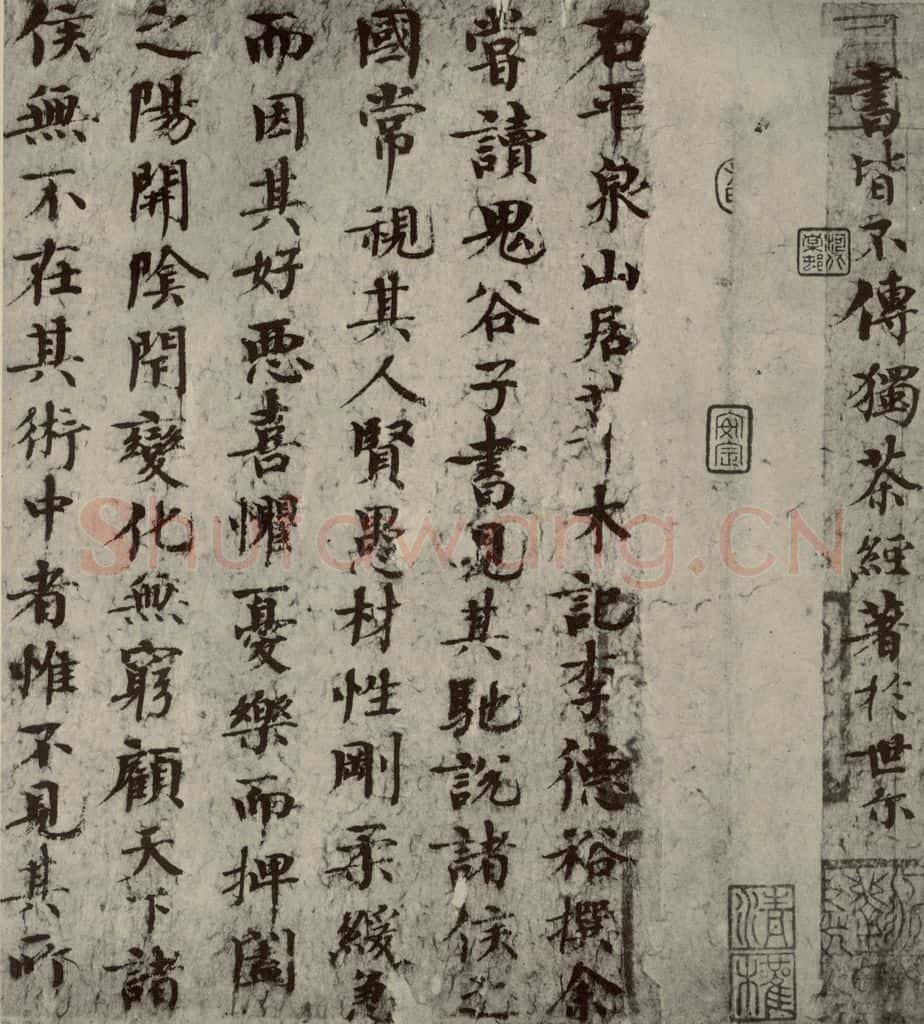 書皆不傳獨茶經著於世尓
安定
右平泉山居草木記李德裕撰余
嘗讀鬼谷子書見其馳說諸侯之
國常視其人賢愚材性剛柔緩急
而因其好惡喜懼憂樂而捭闔
之陽開陰閇變化無窮顧天下諸
侯無不在其術中者惟不見其所
Shufawang.CN